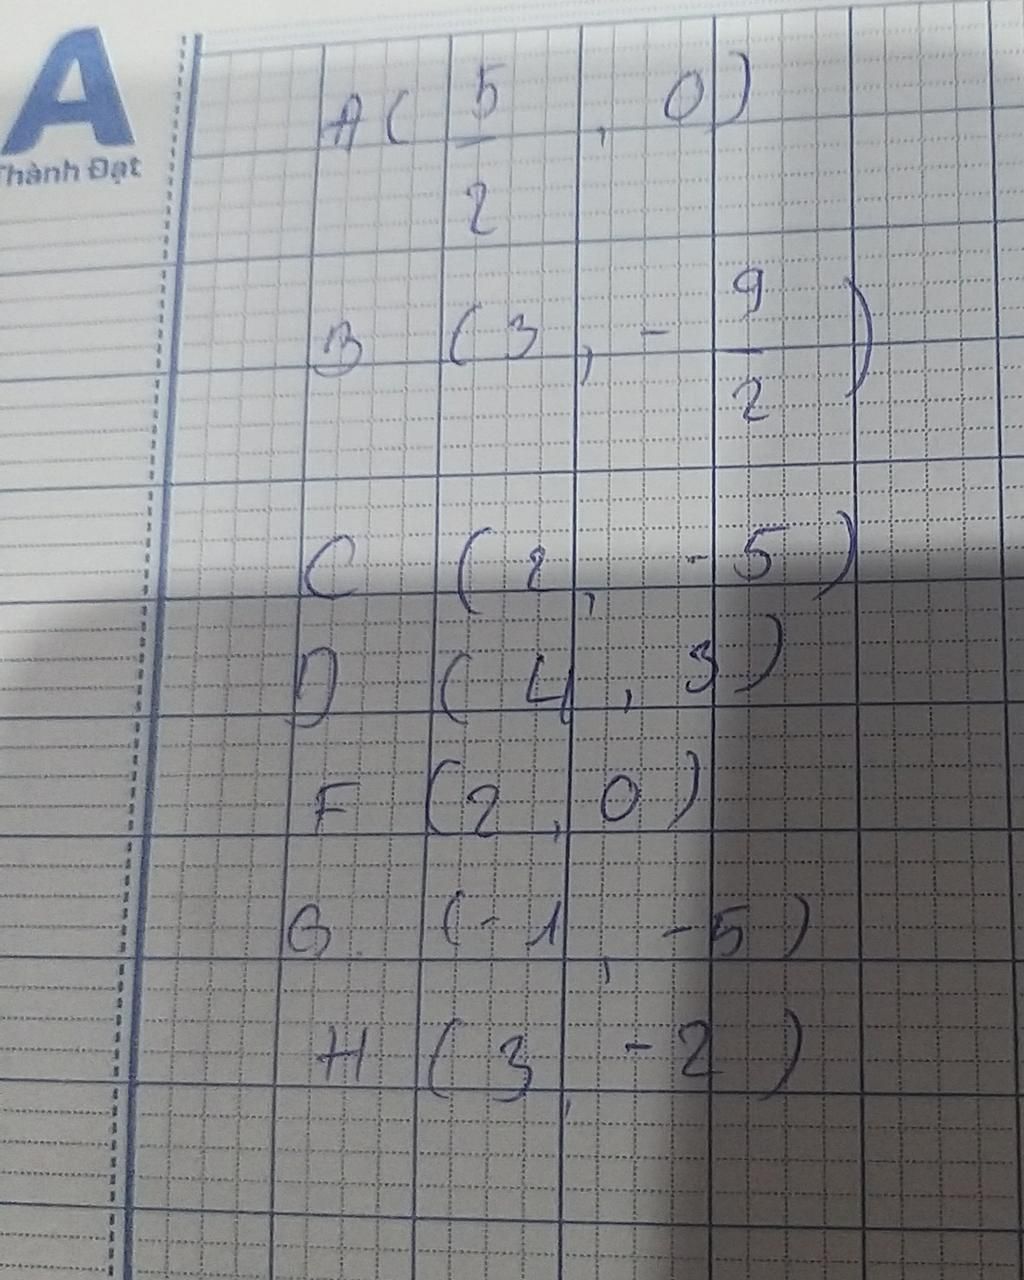 A
Thành Đạt
A ( 5/2 , 0 )
B ( 3 , - 9/2 )
C ( 2 , - 5 )
D ( 4 , 3 )
F ( 2 , 0 )
G ( - 1 , - 5 )
H ( 3 , - 2 )